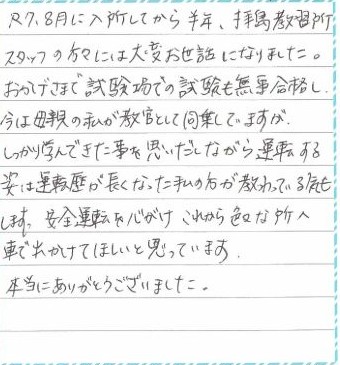 R7.8月に入所してから半年、拝島教習所
スタッフの方々には大変お世話になりました。
おかげさまで試験場での試験も無事合格し、
今は母親の私が教官として同乗していますが、
しっかり学んできた事を思いだしながら運転する
姿は運転歴が長くなった私の方が教わっている気も
します。安全運転を心がけこれから色々な所へ
車で出かけてほしいと思っています。
本当にありがとうございました。